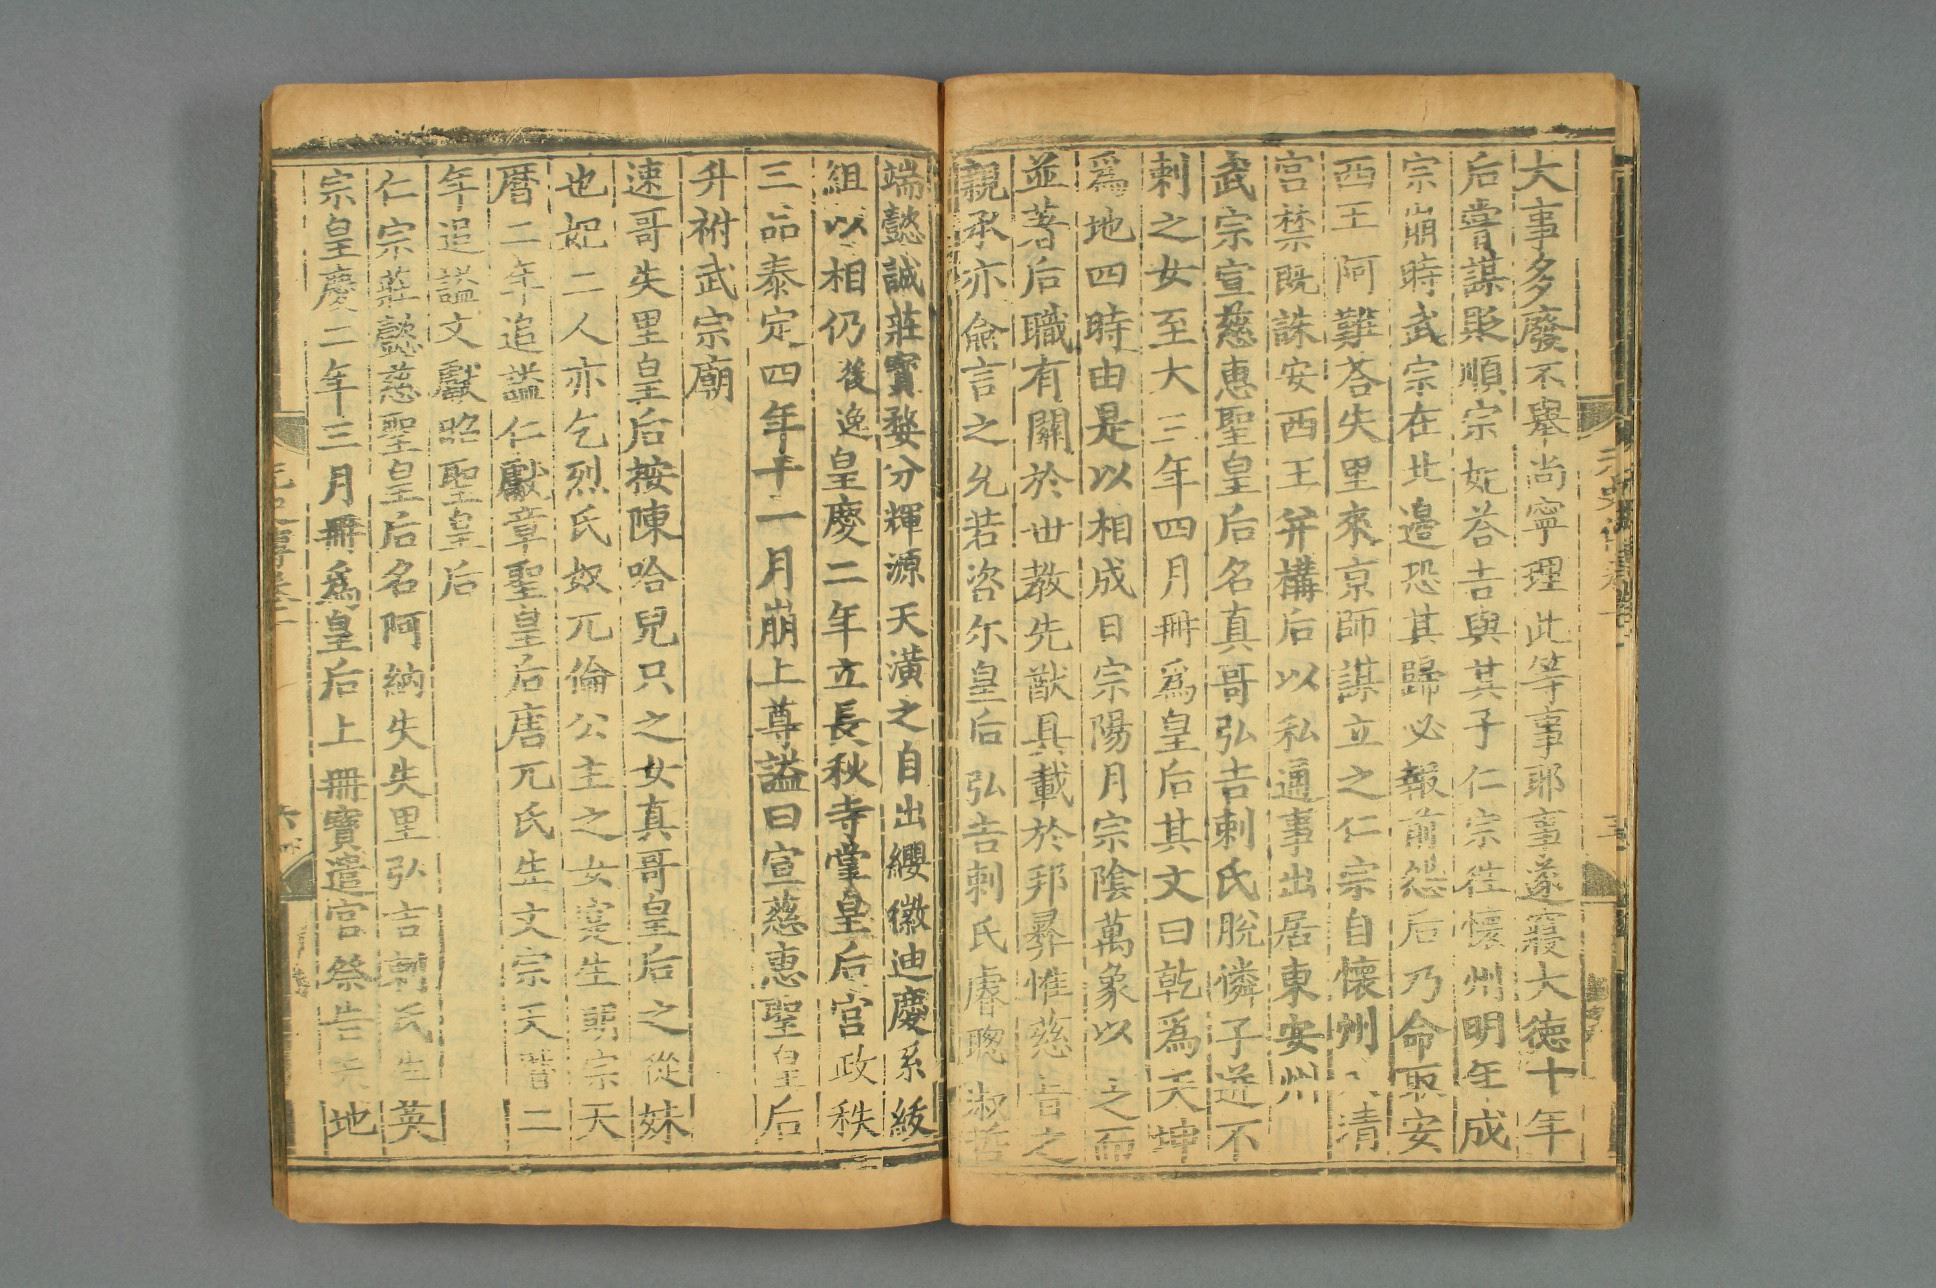 大事多廢不舉尚寧理此等事耶事遂寢大德十年
后嘗謀貶順宗妃荅吉與其子仁宗往懷州明年成
宗崩時武宗在北邊恐其歸必報前怨后乃命取安
西王阿難荅失里來京師謀立之仁宗自懷州入清
宮禁既誅安西王并構后以私通事出居東安州
武宗宣慈惠聖皇后名真哥弘吉剌氏脫憐子迸不
剌之女至大三年四月冊爲皇后其文曰乾爲天坤
爲地四時由是以相成日宗陽月宗陰萬象以之而
並著后職有關於世教先猷具載於邦彛惟慈旨之
親承亦僉言之允若咨尔皇后弘吉剌氏睿聦淑哲
端懿誠莊寳婺分輝源天潢之自出纓徽迪慶系紱
組以相仍後逸皇慶二年立長秋寺掌皇后宫政秩
三品泰定四年十一月崩上尊謚曰宣慈惠聖皇后
升祔武宗廟
速哥失里皇后按陳哈兒只之女真哥皇后之從妹
也妃二人亦乞烈氏奴兀倫公主之女寔生明宗天
曆二年追謚仁獻章聖皇后唐兀氏生文宗天曆二
年追謚文獻昭聖皇后
仁宗莊懿慈聖皇后名阿納失失里弘吉剌氏生英
宗皇慶二年三月冊爲皇后上冊寶遣官祭告天地
元史傳卷一